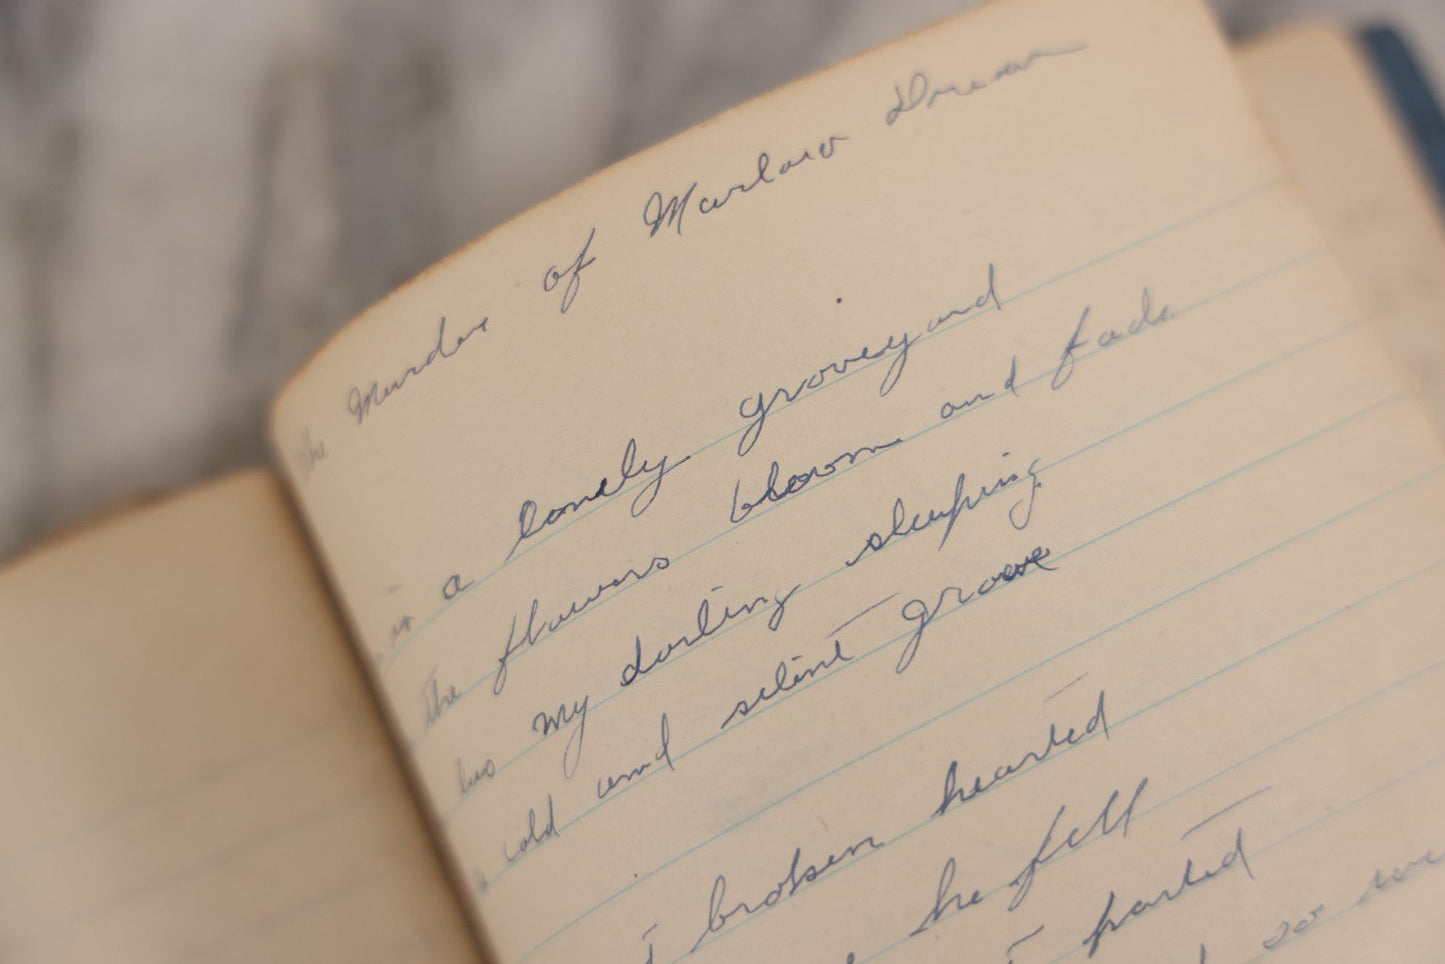 The Murder of Marlow Drean
in a lonely groveyard
the flowers bloom and fade
lies my darling sleeping
cold and silent grove
broken hearted
he fell
parted
so